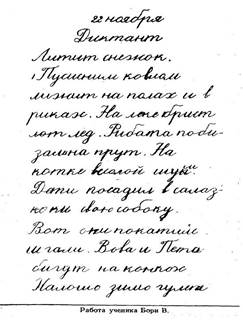 22 ноября
Диктант
Литит снежок.
Пусисним ковлам
лижит на полах и в
риках. На лпе брист
лот лед. Рибата поби
залина прут. На
котке веслой шум
Дети посадил в салаз
ко ки свою собоку.
Вот они покатили
и гали. Вова и Пета
бигут на конкою
Халошо зимо гулят
Работа ученика Бори В.